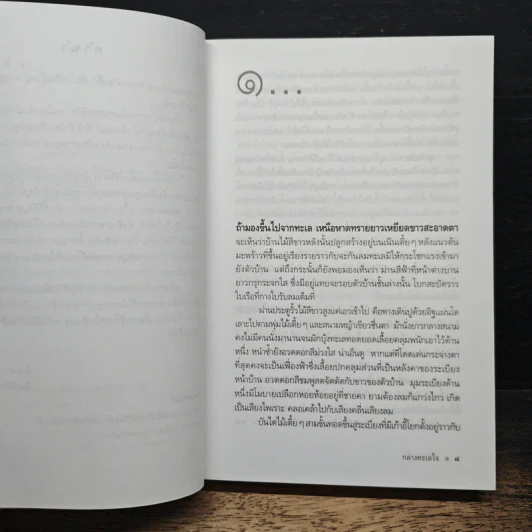 คำนำ
๑...
ถ้ามองขึ้นไปจากทะเล เหนือหาดทรายยาวเหยียดขาวสะอาดตา
จะเห็นว่าบ้านไม้สีขาวหลังนั้นปลูกสร้างอยู่บนเนินเตี้ย ๆ หลังแนวต้น
มะพร้าวที่ขึ้นอยู่เรียงรายราวกับจะกันลมทะเลมิให้กระโชกแรงเข้ามา
ยังตัวบ้าน แต่ถึงกระนั้นก็ยังพอมองเห็นว่า ม่านสีฟ้าที่หน้าต่างบาน
ยาวกรุกระจกใส ซึ่งมีอยู่แทบจะรอบตัวบ้านชั้นล่างนั้น โบกสะบัดราว
ใบเรือที่กางใบรับลมเต็มที่
ผ่านประตูรั้วไม้สีขาวสูงแค่เอวเข้าไป คือทางเดินปูด้วยอิฐแผ่นโต
เลาะไปตามพุ่มไม้เตี้ย ๆ และสนามหญ้าเขียวชื่นตา ม้านั่งยาวกลางสนาม
คงไม่มีคนนั่งมานานจนผักบุ้งทะเลทอดยอดเลื้อยคลุมพนักเอาไว้ด้าน
หนึ่ง หนำซ้ำยังอวดดอกสีม่วงใส น่าเอ็นดู หากแต่ที่โดดเด่นกระจ่างตา
ที่สุดคงจะเป็นเฟื่องฟ้าซึ่งเลื้อยปกคลุมส่วนที่เป็นหลังคาของระเบียง
หน้าบ้าน อวดดอกสีชมพูสดจัดตัดกับขาวของตัวบ้าน มุมระเบียงด้าน
หนึ่งมีโมบายเปลือกหอยห้อยอยู่ที่ชายคา ยามต้องลมก็แกว่งไกว เกิด
เป็นเสียงไพเราะ คลอเคล้าไปกับเสียงคลื่นเสียงลม
บันไดไม้เตี้ย ๆ สามขั้นทอดขึ้นสู่ระเบียงที่มีเก้าอี้โยกตั้งอยู่ราวกับ
กลางทะเลใจ ๑ ๗